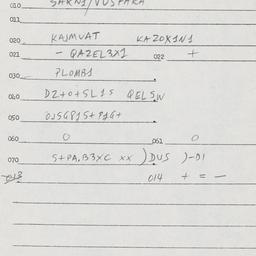 010 SARN1/VUSPARA
011
020 KAJMVAT KAZOK1N1
021 - QAZEL3X1 022 +
030 PLOMB1
040 DZ+O+SL15 QELSW
050 OJSGP1S+P1G+
060 0 061 0
070 S+PA,B3XC XX )DUS )-D1
014 + = -